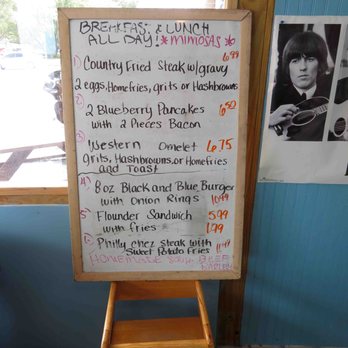 BREAKFAST & LUNCH
ALL DAY! *MIMOSAS*
1) Country Fried Steak w/gravy 6.99
2 eggs, Homefries, grits or Hashbrowns
2) 2 Blueberry Pancakes 6.50
with 2 Pieces Bacon
3) Western Omelet 6.75
grits, Hashbrowns, or Homefries
and Toast
4) 8oz Black and Blue Burger
with Onion Rings 10.99
5) Flounder Sandwich 5.99
with fries 1.99
6) Philly chez Steak with
Sweet Potato Fries
HOMEMADE Soup BEEF
BARLEY